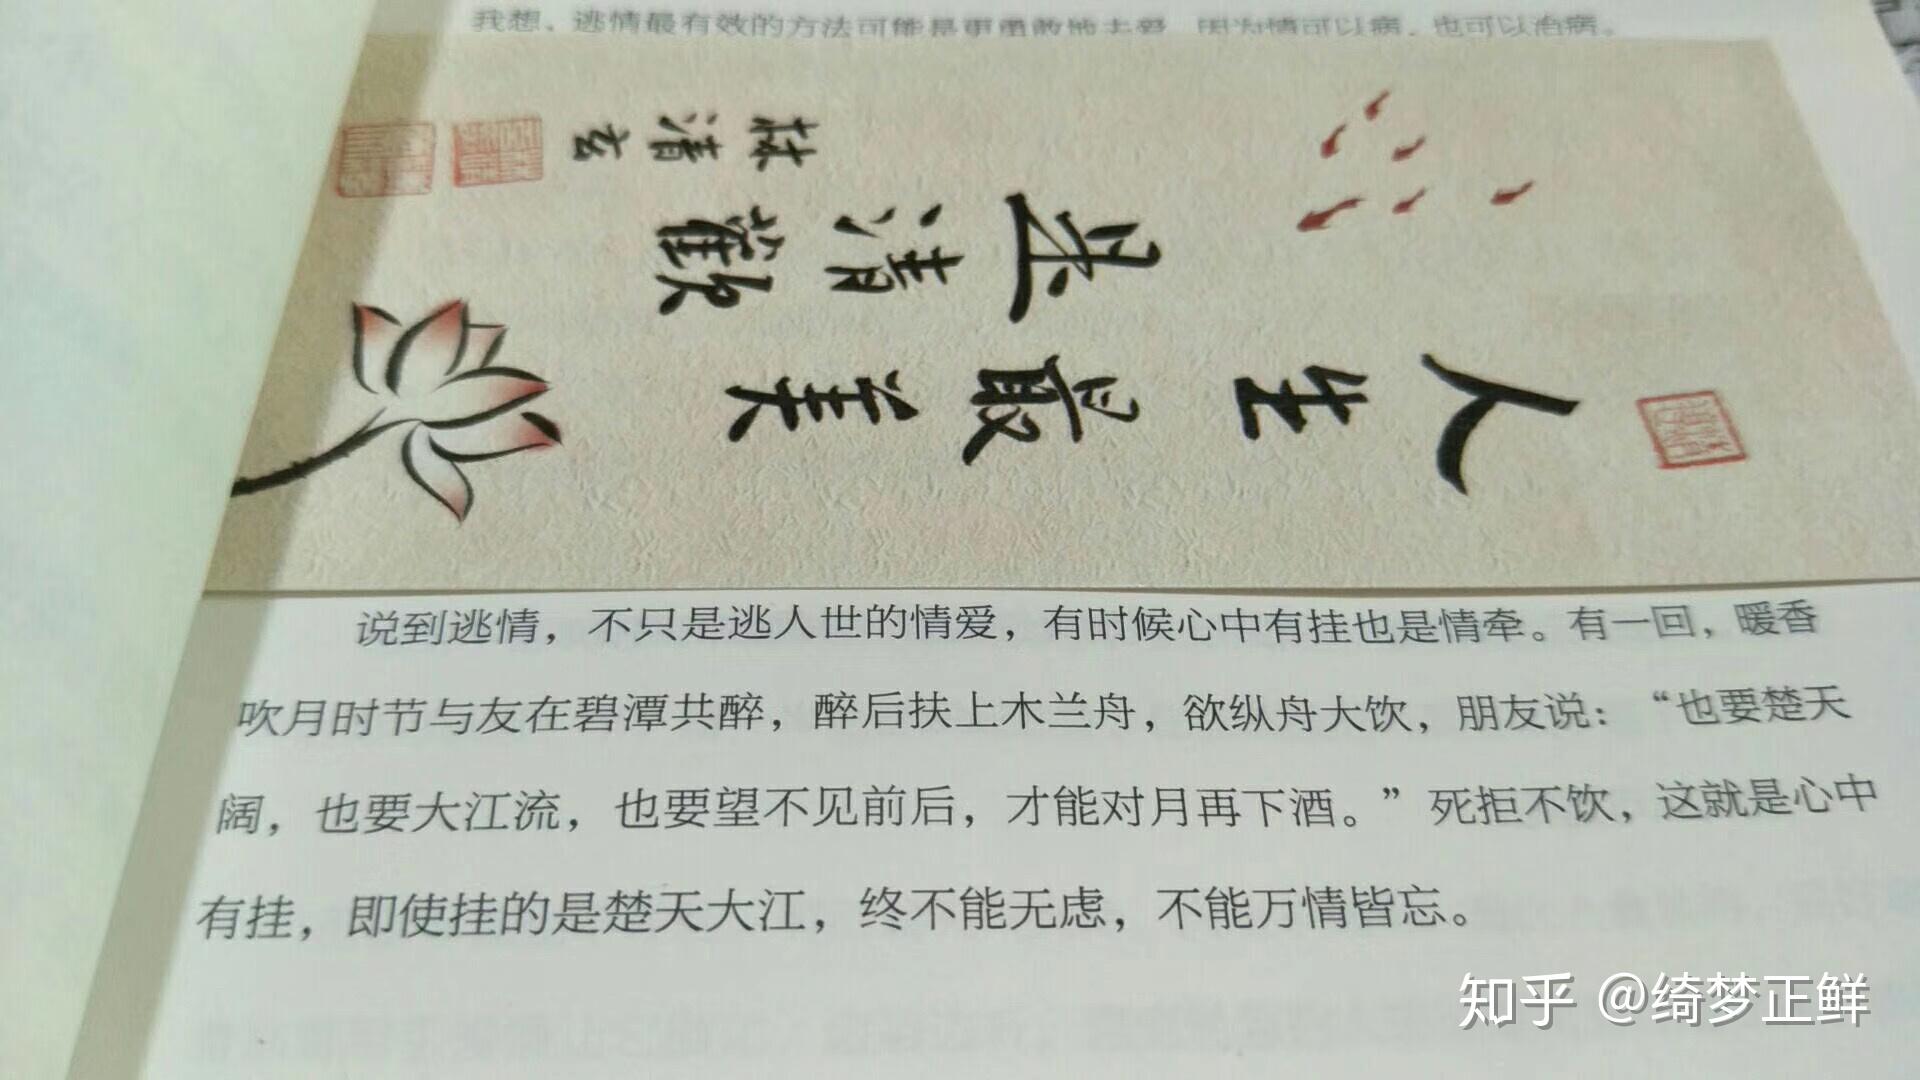 我想，逃情最有效的方法可能是更勇敢地去爱，因为情可以病，也可以治病。
人生最美
是清歡
林清玄
说到逃情，不只是逃人世的情爱，有时候心中有挂也是情牵。有一回，暖香
吹月时节与友在碧潭共醉，醉后扶上木兰舟，欲纵舟大饮，朋友说：“也要楚天
阔，也要大江流，也要望不见前后，才能对月再下酒。”死拒不饮，这就是心中
有挂，即使挂的是楚天大江，终不能无虑，不能万情皆忘。
知乎 @绮梦正鲜